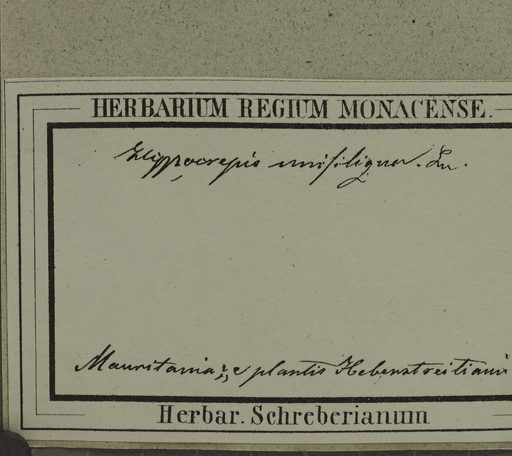 HERBARIUM REGIUM MONACENSE.
Hippocrepis unisiliqua. Ln.
Mauritania; e plantis Hebenstreitianis
Herbar. Schreberianum